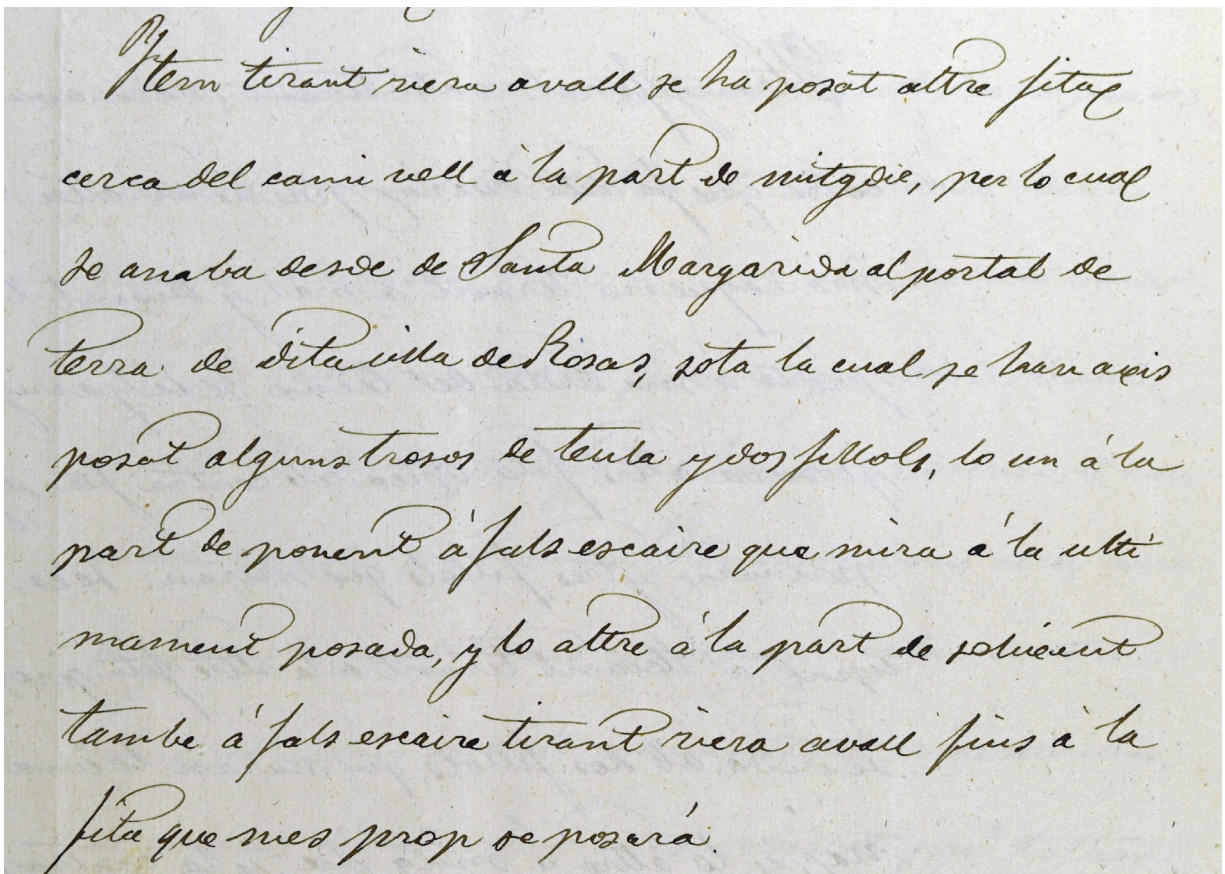 Ytem tirant riera avall se ha posat altre fita
cerca del cami vell à la part de mitgdie, per lo cual
se anaba desde de Santa Margarida al portal de
terra de dita villa de Rosas, sota la cual se han axis
posat alguns trosos de teula y dos fillols, lo un à la
part de ponent á fals escaire que mira á la ulti
mament posada, y lo altre à la part de solixent
tambe á fals escaire tirant riera avall fins à la
fita que mes prop se posará.